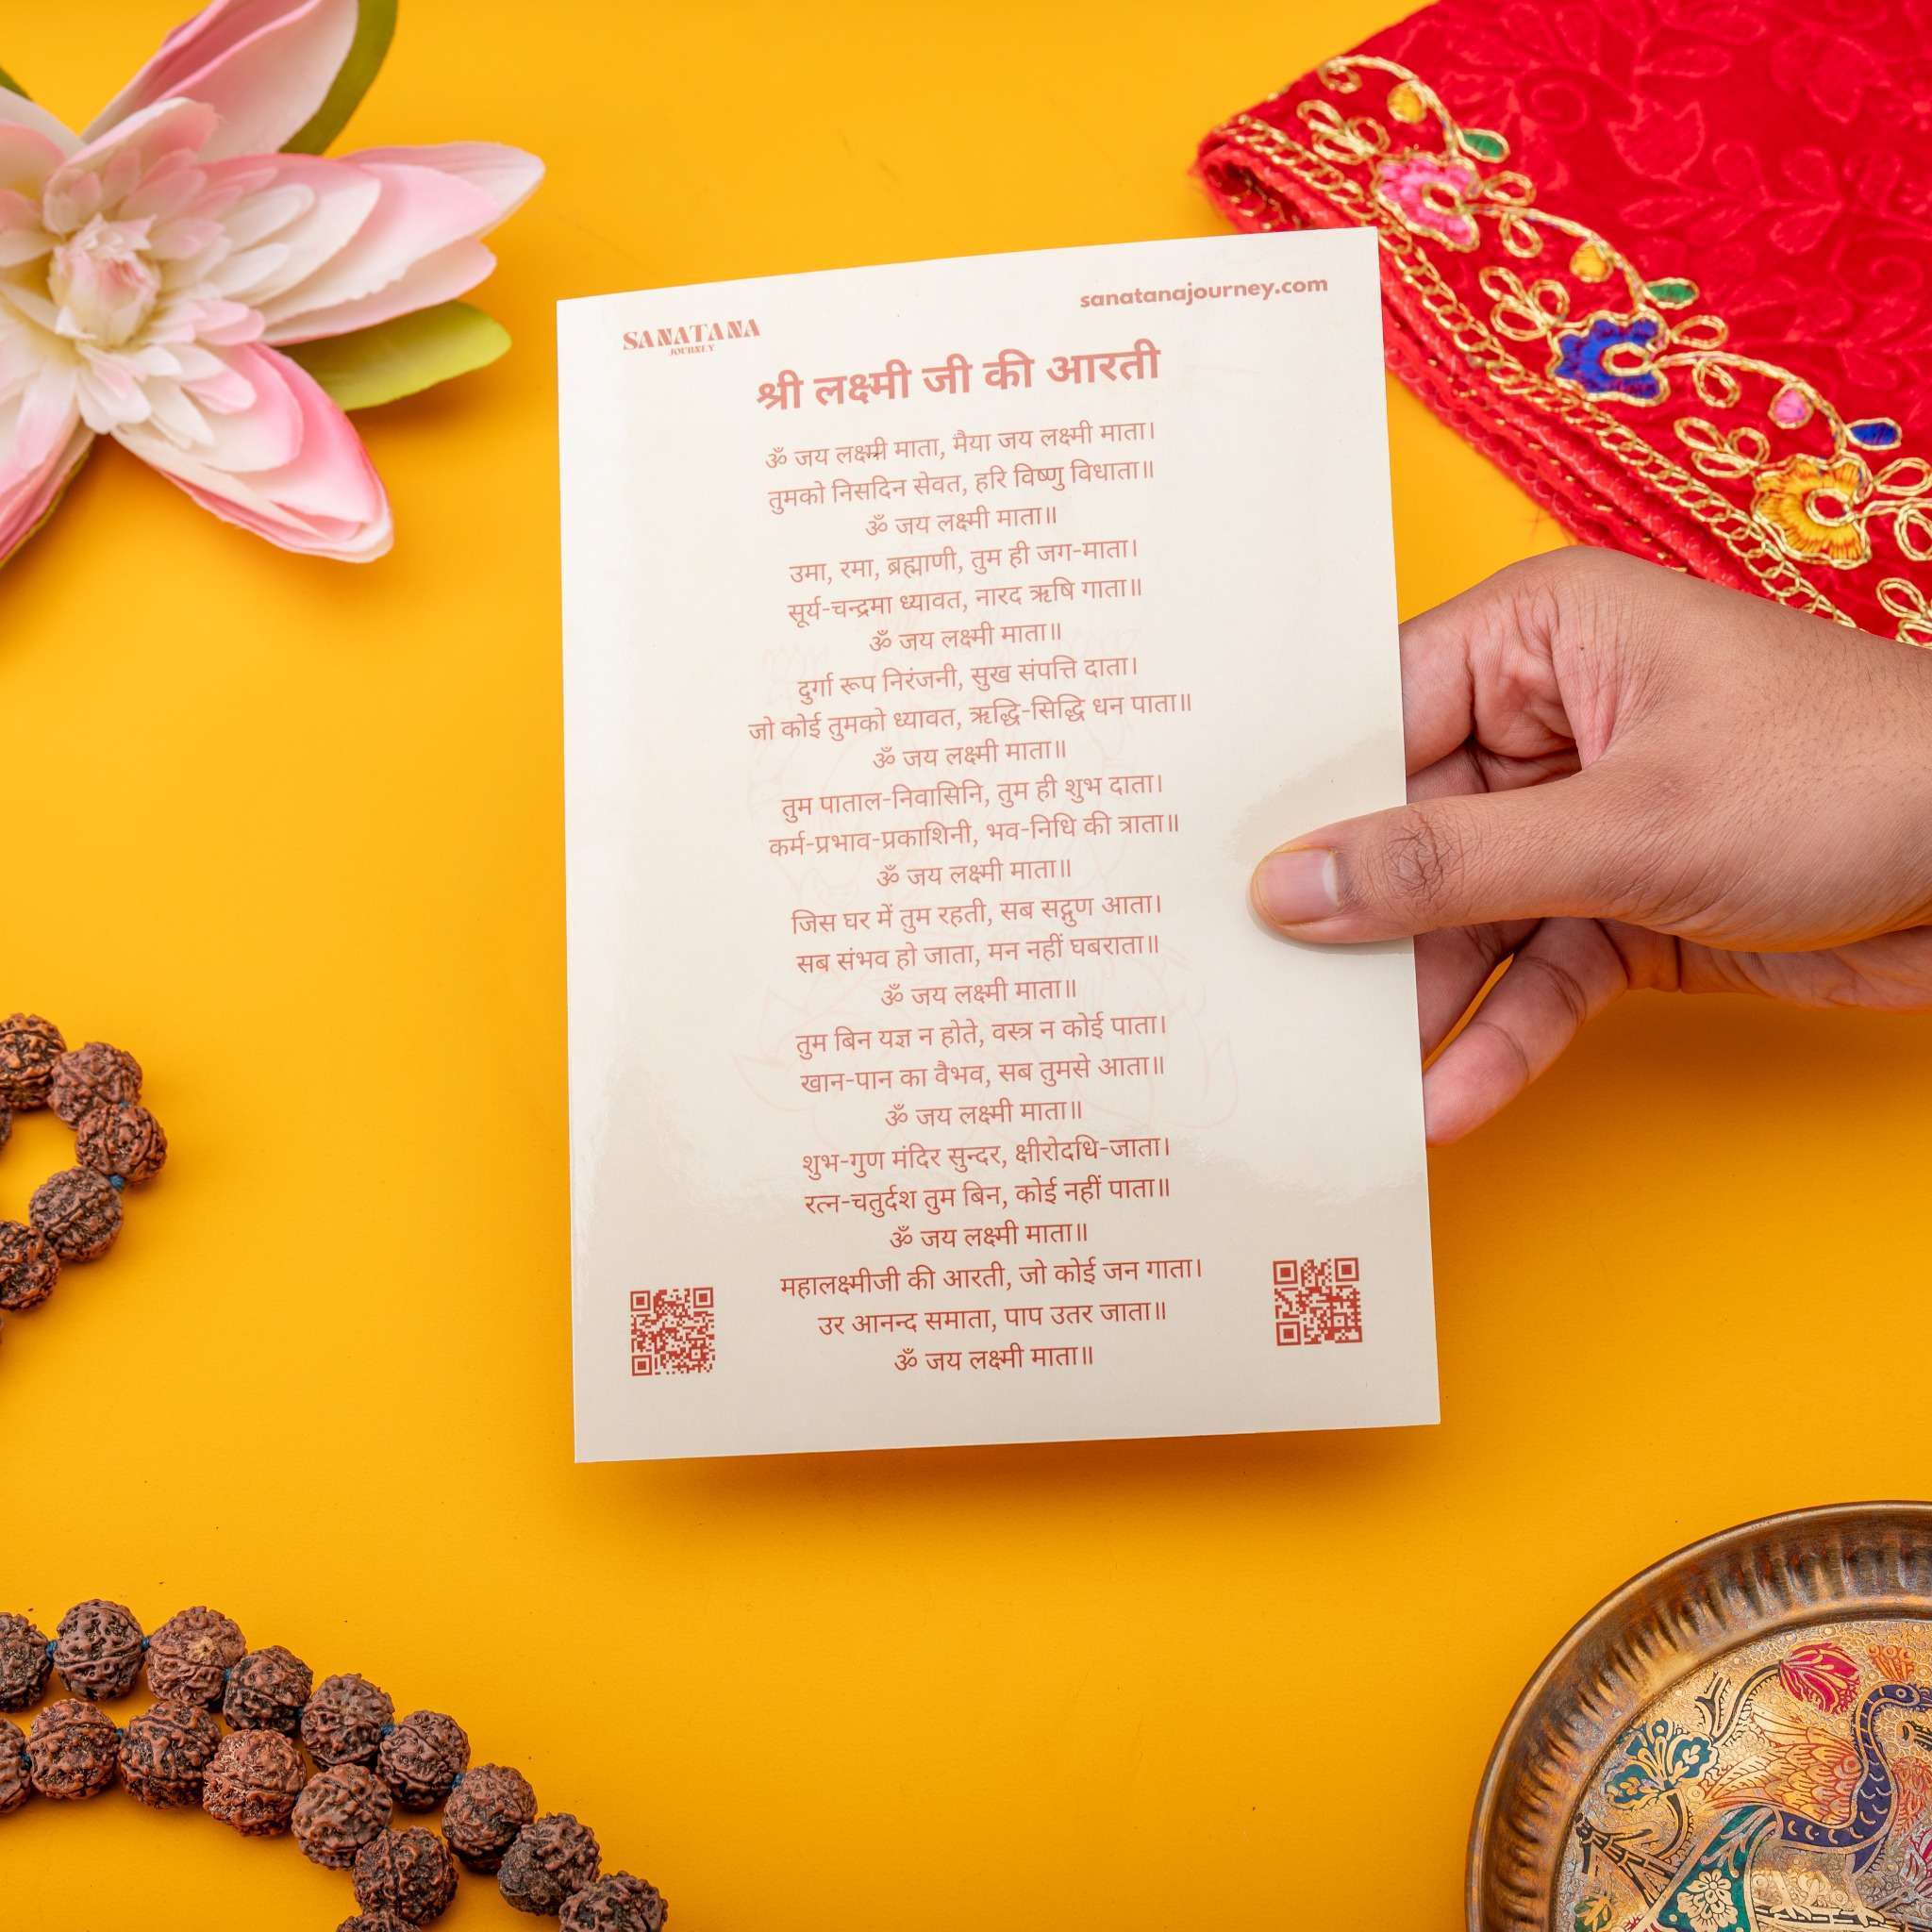 sanatanajourney.com
SANATANA
JOURNEY
श्री लक्ष्मी जी की आरती
ॐ जय लक्ष्मी माता, मैया जय लक्ष्मी माता।
तुमको निसदिन सेवत, हरि विष्णु विधाता॥
ॐ जय लक्ष्मी माता॥
उमा, रमा, ब्रह्माणी, तुम ही जग-माता।
सूर्य-चन्द्रमा ध्यावत, नारद ऋषि गाता॥
ॐ जय लक्ष्मी माता॥
दुर्गा रूप निरंजनी, सुख संपत्ति दाता।
जो कोई तुमको ध्यावत, ऋद्धि-सिद्धि धन पाता॥
ॐ जय लक्ष्मी माता॥
तुम पाताल-निवासिनि, तुम ही शुभ दाता।
कर्म-प्रभाव-प्रकाशिनी, भव-निधि की त्राता॥
ॐ जय लक्ष्मी माता॥
जिस घर में तुम रहती, सब सद्गुण आता।
सब संभव हो जाता, मन नहीं घबराता॥
ॐ जय लक्ष्मी माता॥
तुम बिन यज्ञ न होते, वस्त्र न कोई पाता।
खान-पान का वैभव, सब तुमसे आता॥
ॐ जय लक्ष्मी माता॥
शुभ-गुण मंदिर सुन्दर, क्षीरोदधि-जाता।
रत्न-चतुर्दश तुम बिन, कोई नहीं पाता॥
ॐ जय लक्ष्मी माता॥
महालक्ष्मीजी की आरती, जो कोई जन गाता।
उर आनन्द समाता, पाप उतर जाता॥
ॐ जय लक्ष्मी माता॥